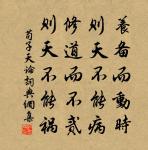 養備而動時
則天不能病
修道而不貳
則天不能禍
荀子天論詞典網集